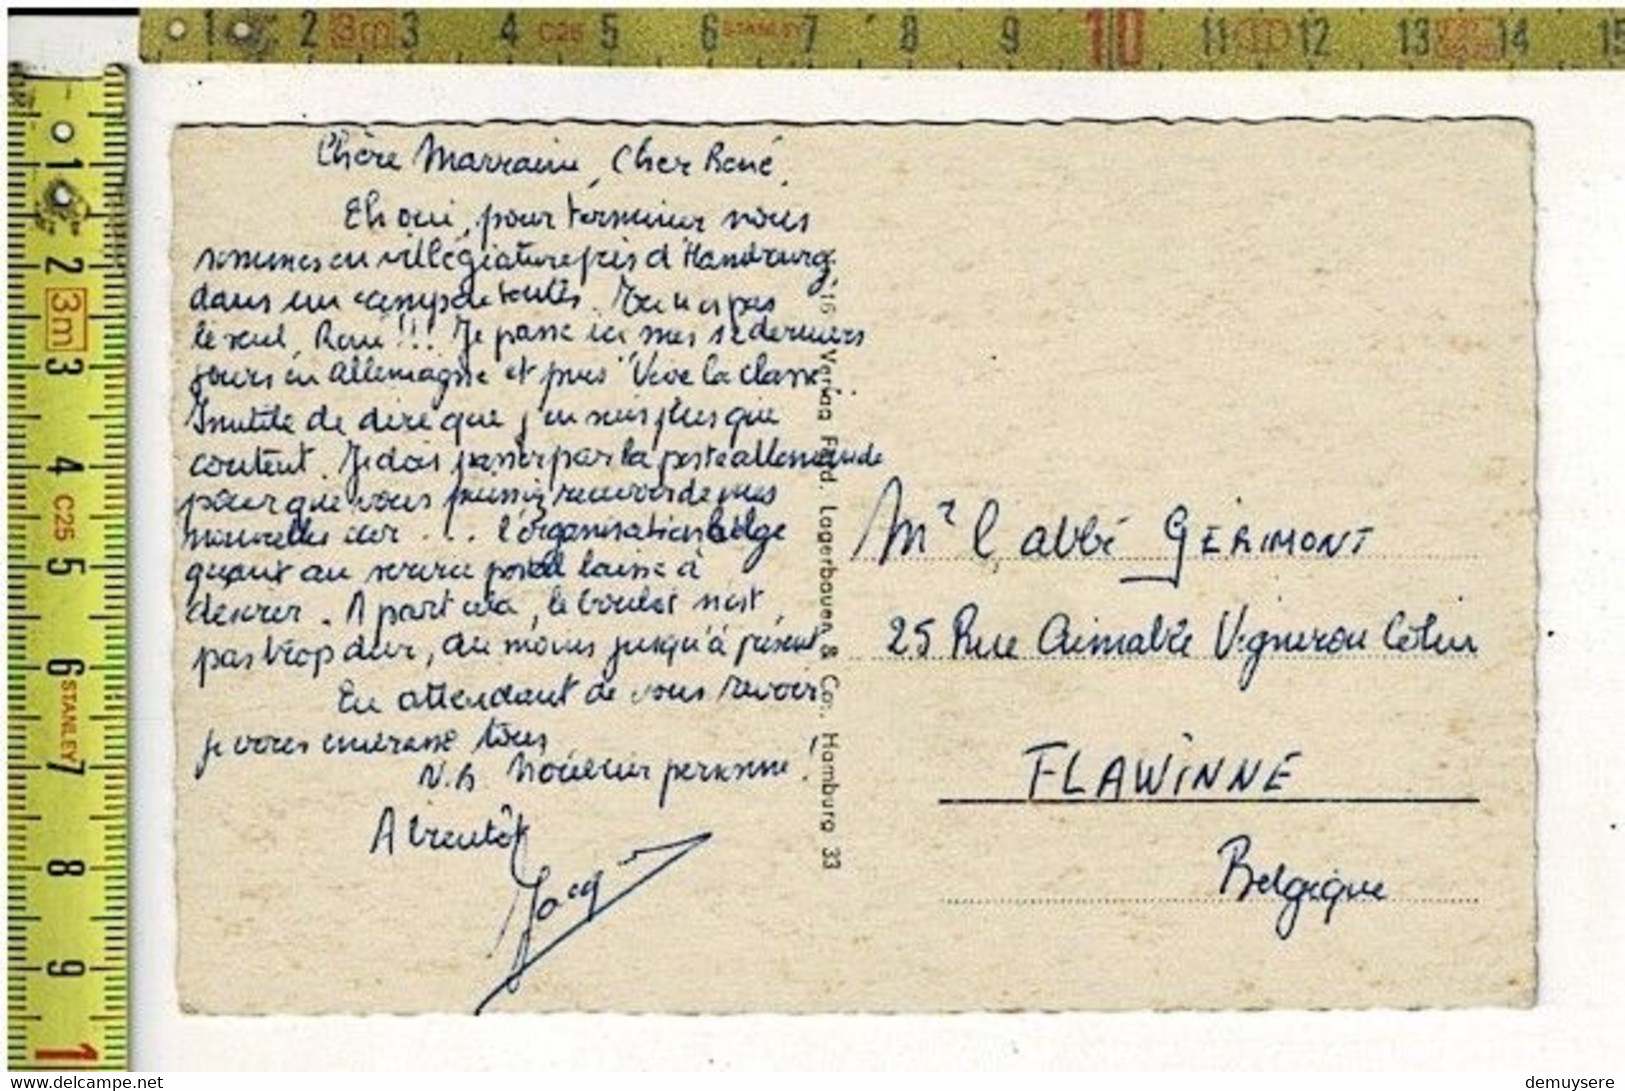 1 2 3m 3 4 C25 5 6 STANLEY 7 8 9 10 11 12 13 14 15
1 2 3m 3 4 C25 5 6 STANLEY 7 8 9 1
Chère Marraine, Cher René,
Eh oui, pour terminer nous
sommes en villégiature près d'Hambourg
dans un camp de toiles. Tu n'es pas
le seul, René!!! Je passe ici mes 12 derniers
jours en Allemagne et puis "Vive la classe"
Inutile de dire que j'en suis plus que
content. Je dois passer par la poste allemande
pour que vous puissiez recevoir de mes
nouvelles car ... l'organisation belge
quant au service postal laisse à
désirer. A part cela, le boulot n'est
pas trop dur, du moins jusqu'à présent
En attendant de vous revoir
je vous embrasse tous
N.B N'oublier personne!
A bientôt
Jacq
16 Verlag Ferd. Lagerbauer & Co., Hamburg 33
Mr l'abbé GÉRIMONT
25 Rue Aimable Vigneron Colin
FLAWINNE
Belgique
www.delcampe.net
demuysere